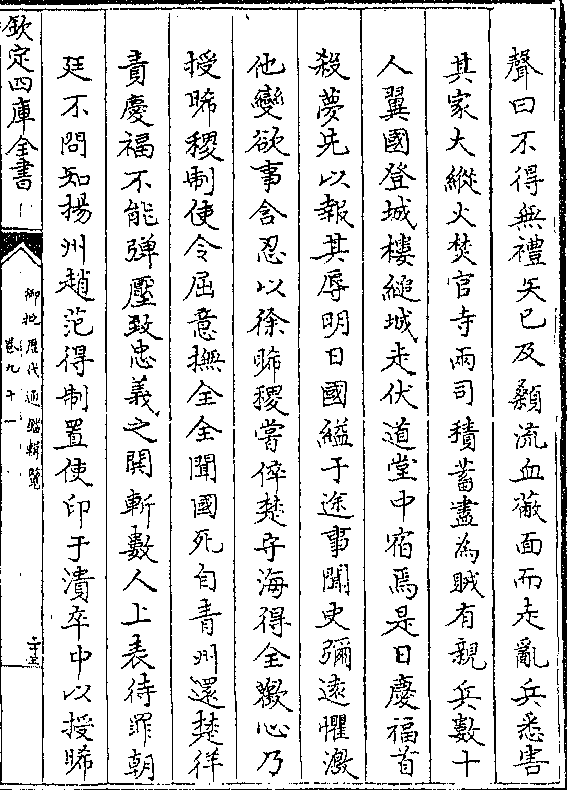 聲曰不得無禮矢已及顙流血蔽面而走亂兵悉害
其家大縱火焚官寺兩司積蓄盡為賊有親兵數十
人翼國登城樓縋城走伏道堂中宿焉是日慶福首
殺夢先以報其辱明日國縊于途事聞史彌逺懼激
他變欲事含忍以徐晞稷嘗倅楚守海得全歡心乃
授晞稷制使令屈意撫全全聞國死自青州還楚佯
責慶福不能彈壓致忠義之鬨斬數人上表待罪朝
廷不問知揚州趙范得制置使印于潰卒中以授晞
欽定四庫全書
御批歷代通鑑輯覽
卷九十一